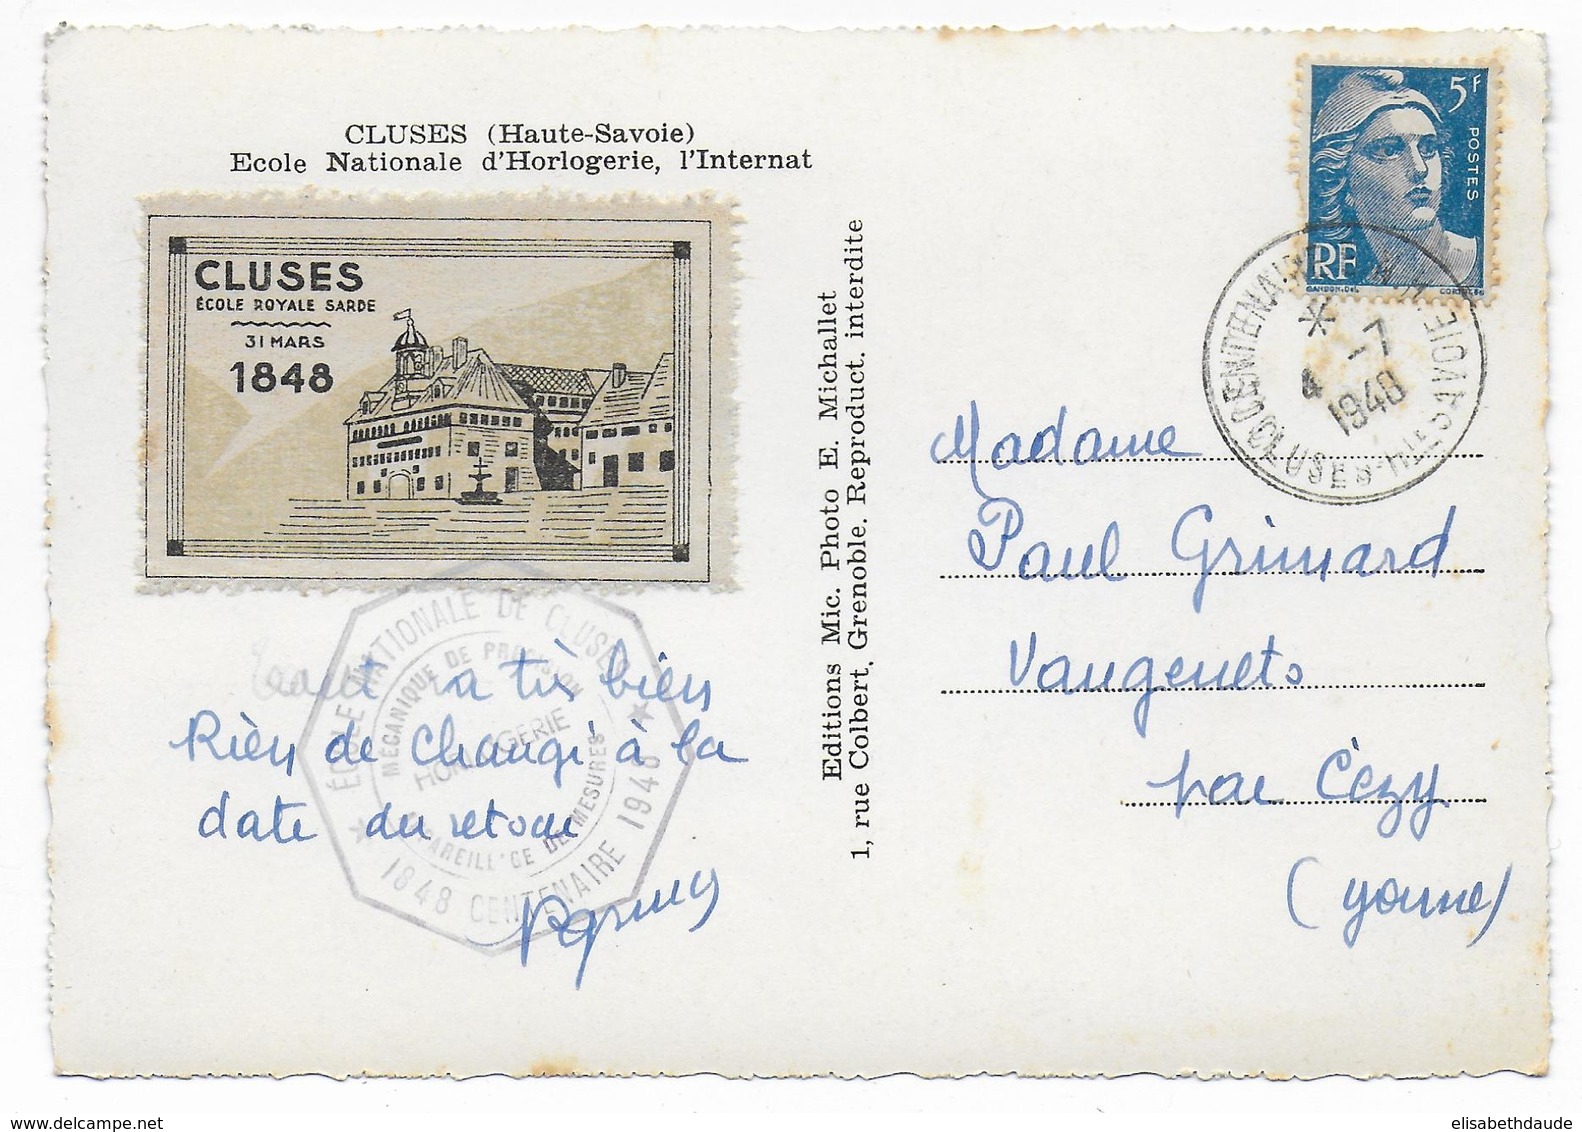 CLUSES (Haute-Savoie)
Ecole Nationale d'Horlogerie, l'Internat
CLUSES
ÉCOLE ROYALE SARDE
31 MARS
1848
ÉCOLE NATIONALE DE CLUSES
MÉCANIQUE DE PRÉCISION
HORLOGERIE
DE MESURES
1848 CENTENAIRE 1948
tout va très bien
Rien de changé à la
date du retour
Editions Mic. Photo E. Michallet
1, rue Colbert, Grenoble. Reproduct. interdite
5F
POSTES
RF
GANDON.DEL
CENTENAIRE
* 4 -7
1948
CLUSES-HTE SAVOIE
Madame
Paul Grimard
Vaugenets
par Cézy
(Yonne)
elisabethdaude